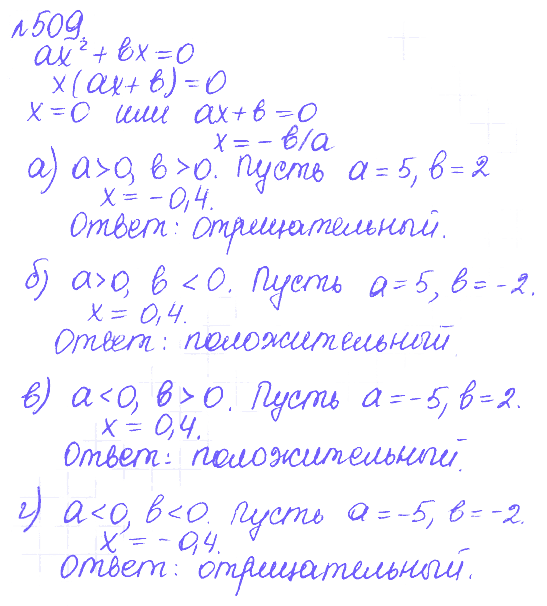 №509.
ax² + bx = 0
x(ax + b) = 0
x = 0 или ax + b = 0
x = - b/a
а) a > 0, b > 0. Пусть a = 5, b = 2
x = - 0,4.
Ответ: отрицательный.
б) a > 0, b < 0. Пусть a = 5, b = -2.
x = 0,4.
Ответ: положительный.
в) a < 0, b > 0. Пусть a = -5, b = 2.
x = 0,4.
Ответ: положительный.
г) a < 0, b < 0. Пусть a = -5, b = -2.
x = - 0,4.
Ответ: отрицательный.